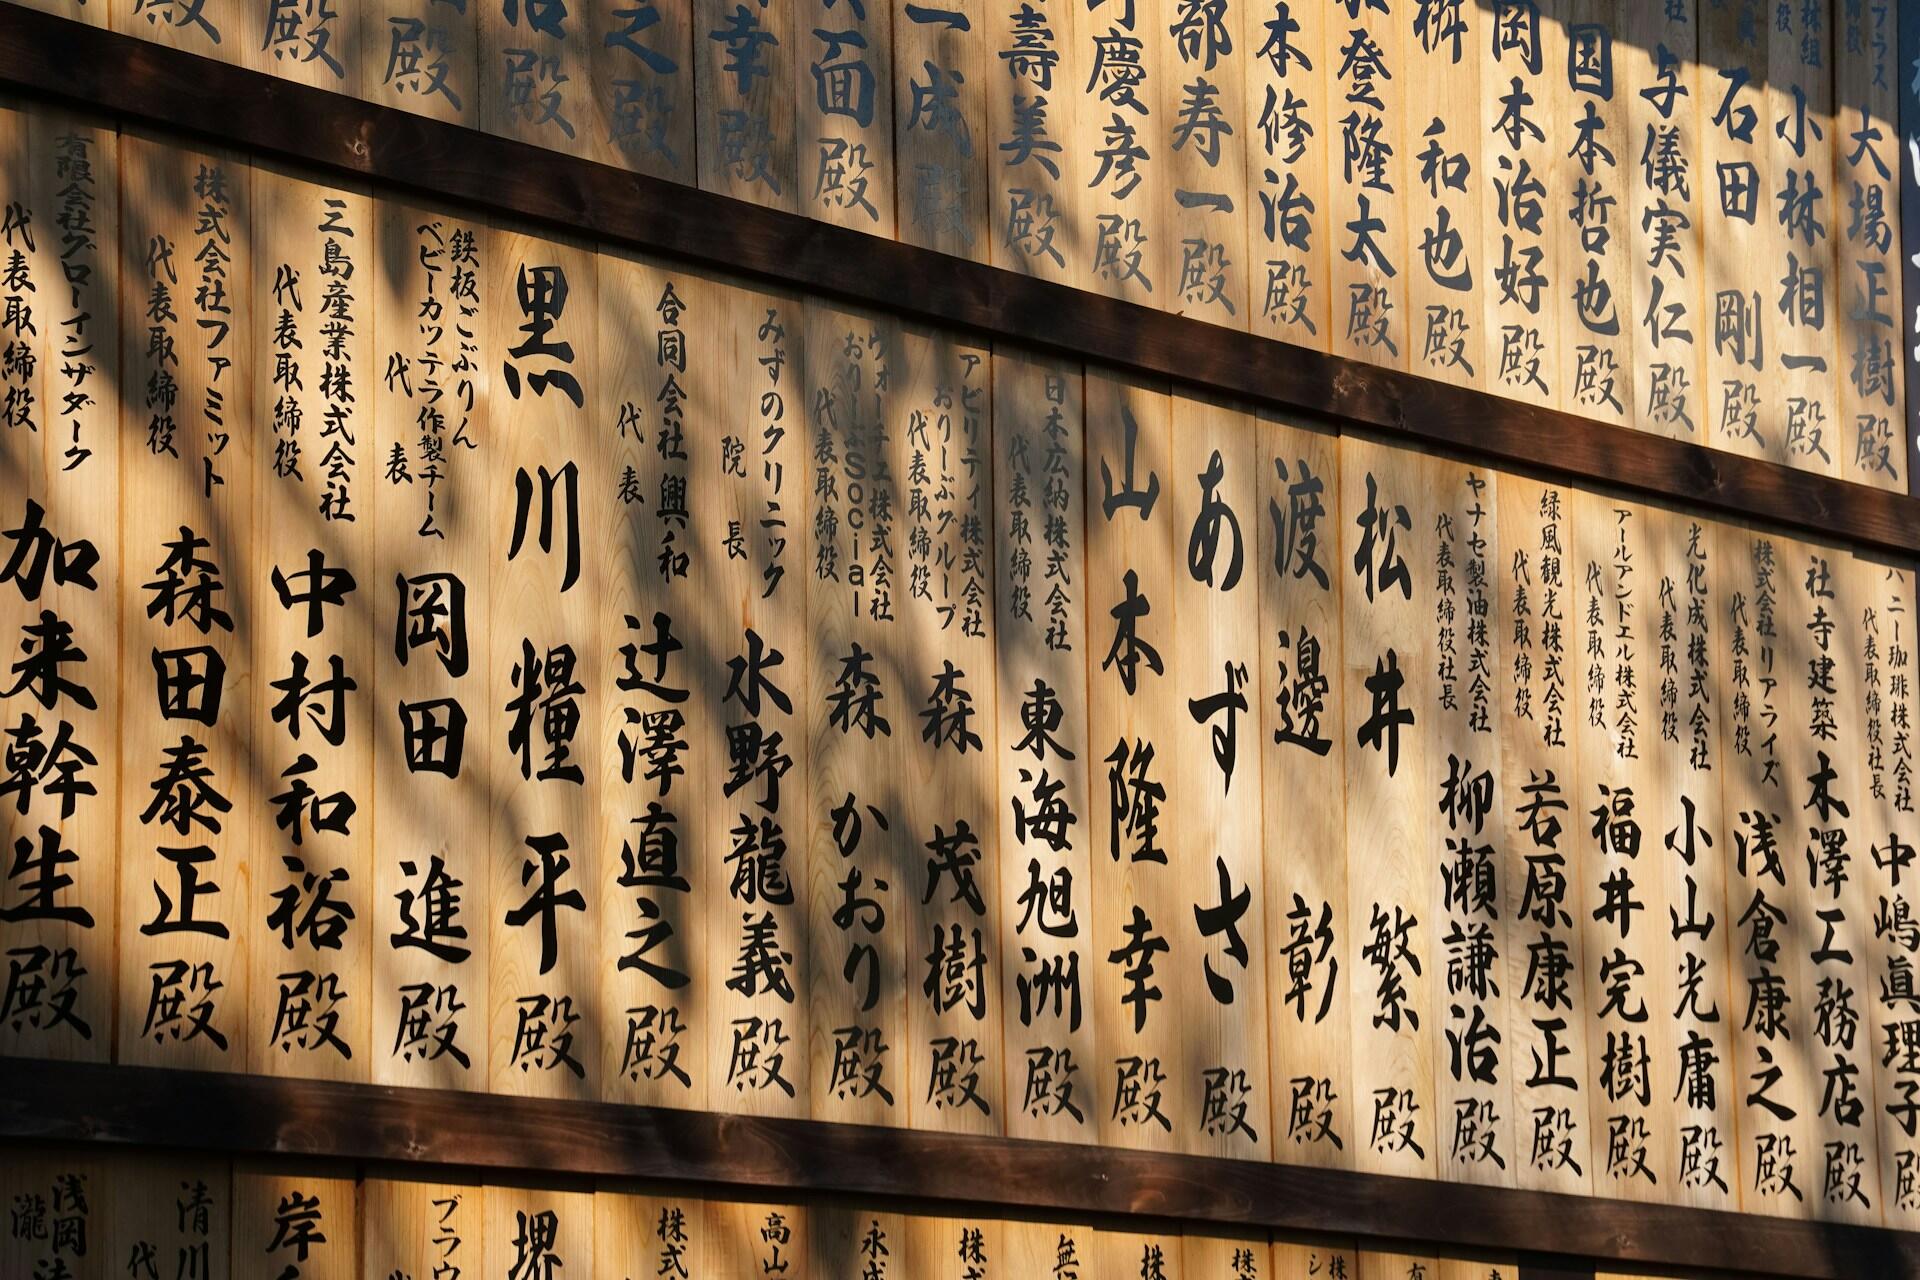 プラス
大場正樹殿
林組
小林相一殿
石田 剛殿
社
与儀実仁殿
国本哲也殿
岡本治好殿
和也殿
登隆太殿
本修治殿
部寿一殿
慶彦殿
壽美殿
一成殿
面殿
幸殿
之殿
治殿
殿
殿
殿
ハニー珈琲株式会社
代表取締役社長
中嶋眞理子殿
社寺建築
木澤工務店殿
株式会社リアライズ
代表取締役
浅倉康之殿
光化成株式会社
代表取締役
小山光庸殿
アールアンドエル株式会社
代表取締役
福井完樹殿
緑風観光株式会社
代表取締役
若原康正殿
ヤナセ製油株式会社
代表取締役社長
柳瀬謙治殿
松井 繁殿
渡邊 彰殿
あずさ殿
山本隆幸殿
日本広納株式会社
代表取締役
東海旭洲殿
アビリティ株式会社
おりーぶグループ
代表取締役
森 茂樹殿
ウォーチエ株式会社
おりーぶSocial
代表取締役
森 かおり殿
みずのクリニック
院長
水野龍義殿
合同会社 興和
代表
辻澤直之殿
黒川糧平殿
鉄板ごぶりん
ベビーカツテラ作製チーム
代表
岡田 進殿
三島産業株式会社
代表取締役
中村和裕殿
株式会社ファミット
代表取締役
森田泰正殿
有限会社グローインザダーク
代表取締役
加来幹生殿
有
株
シ
株
株
無
株
永成
高山
株式
堺
ブラウ
岸
清川
代
浅岡
瀧